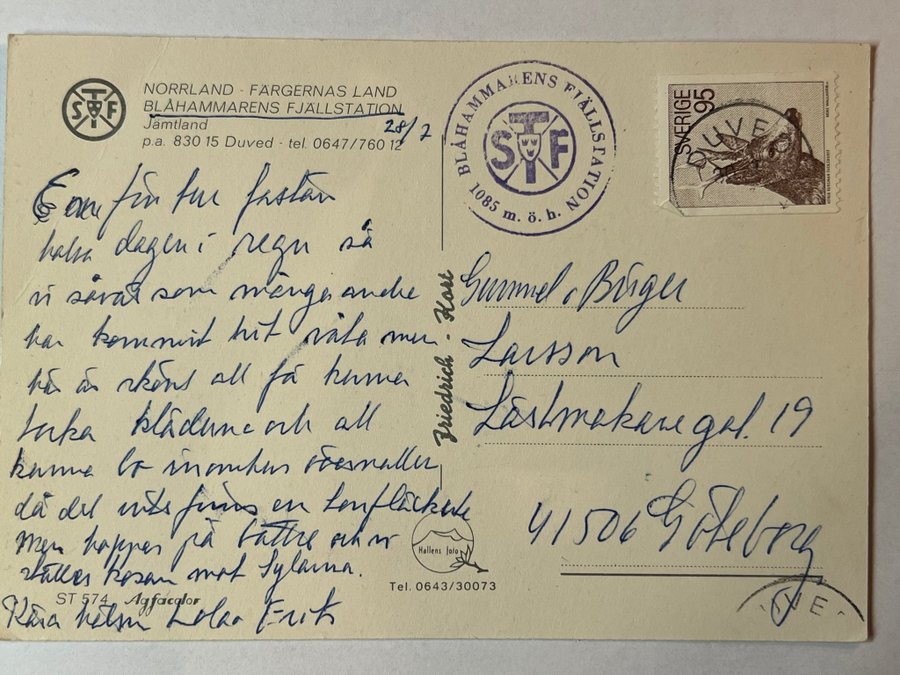 STF
NORRLAND - FÄRGERNAS LAND
BLÅHAMMARENS FJÄLLSTATION
Jämtland
p.a. 830 15 Duved - tel. 0647/760 12
28/7
En fin tur fastän
halva dagen i regn så
vi såväl som många andra
har kommit hit våta men
här är skönt att få kunna
torka kläderna och att
kunna bo inomhus
då det inte finns en
Men hoppas på bättre och vi
ställer kosan mot Sylarna.
Kära Erik
ST 574 Agfacolor
BLÅHAMMARENS FJÄLLSTATION
STF
1085 m. ö. h.
SVERIGE 95
DUVED
Friedrich - Kort
Gunnel o Birger
Larsson
Lästmakaregat. 19
41506 Göteborg
Hallens foto
Tel. 0643/30073
UVE